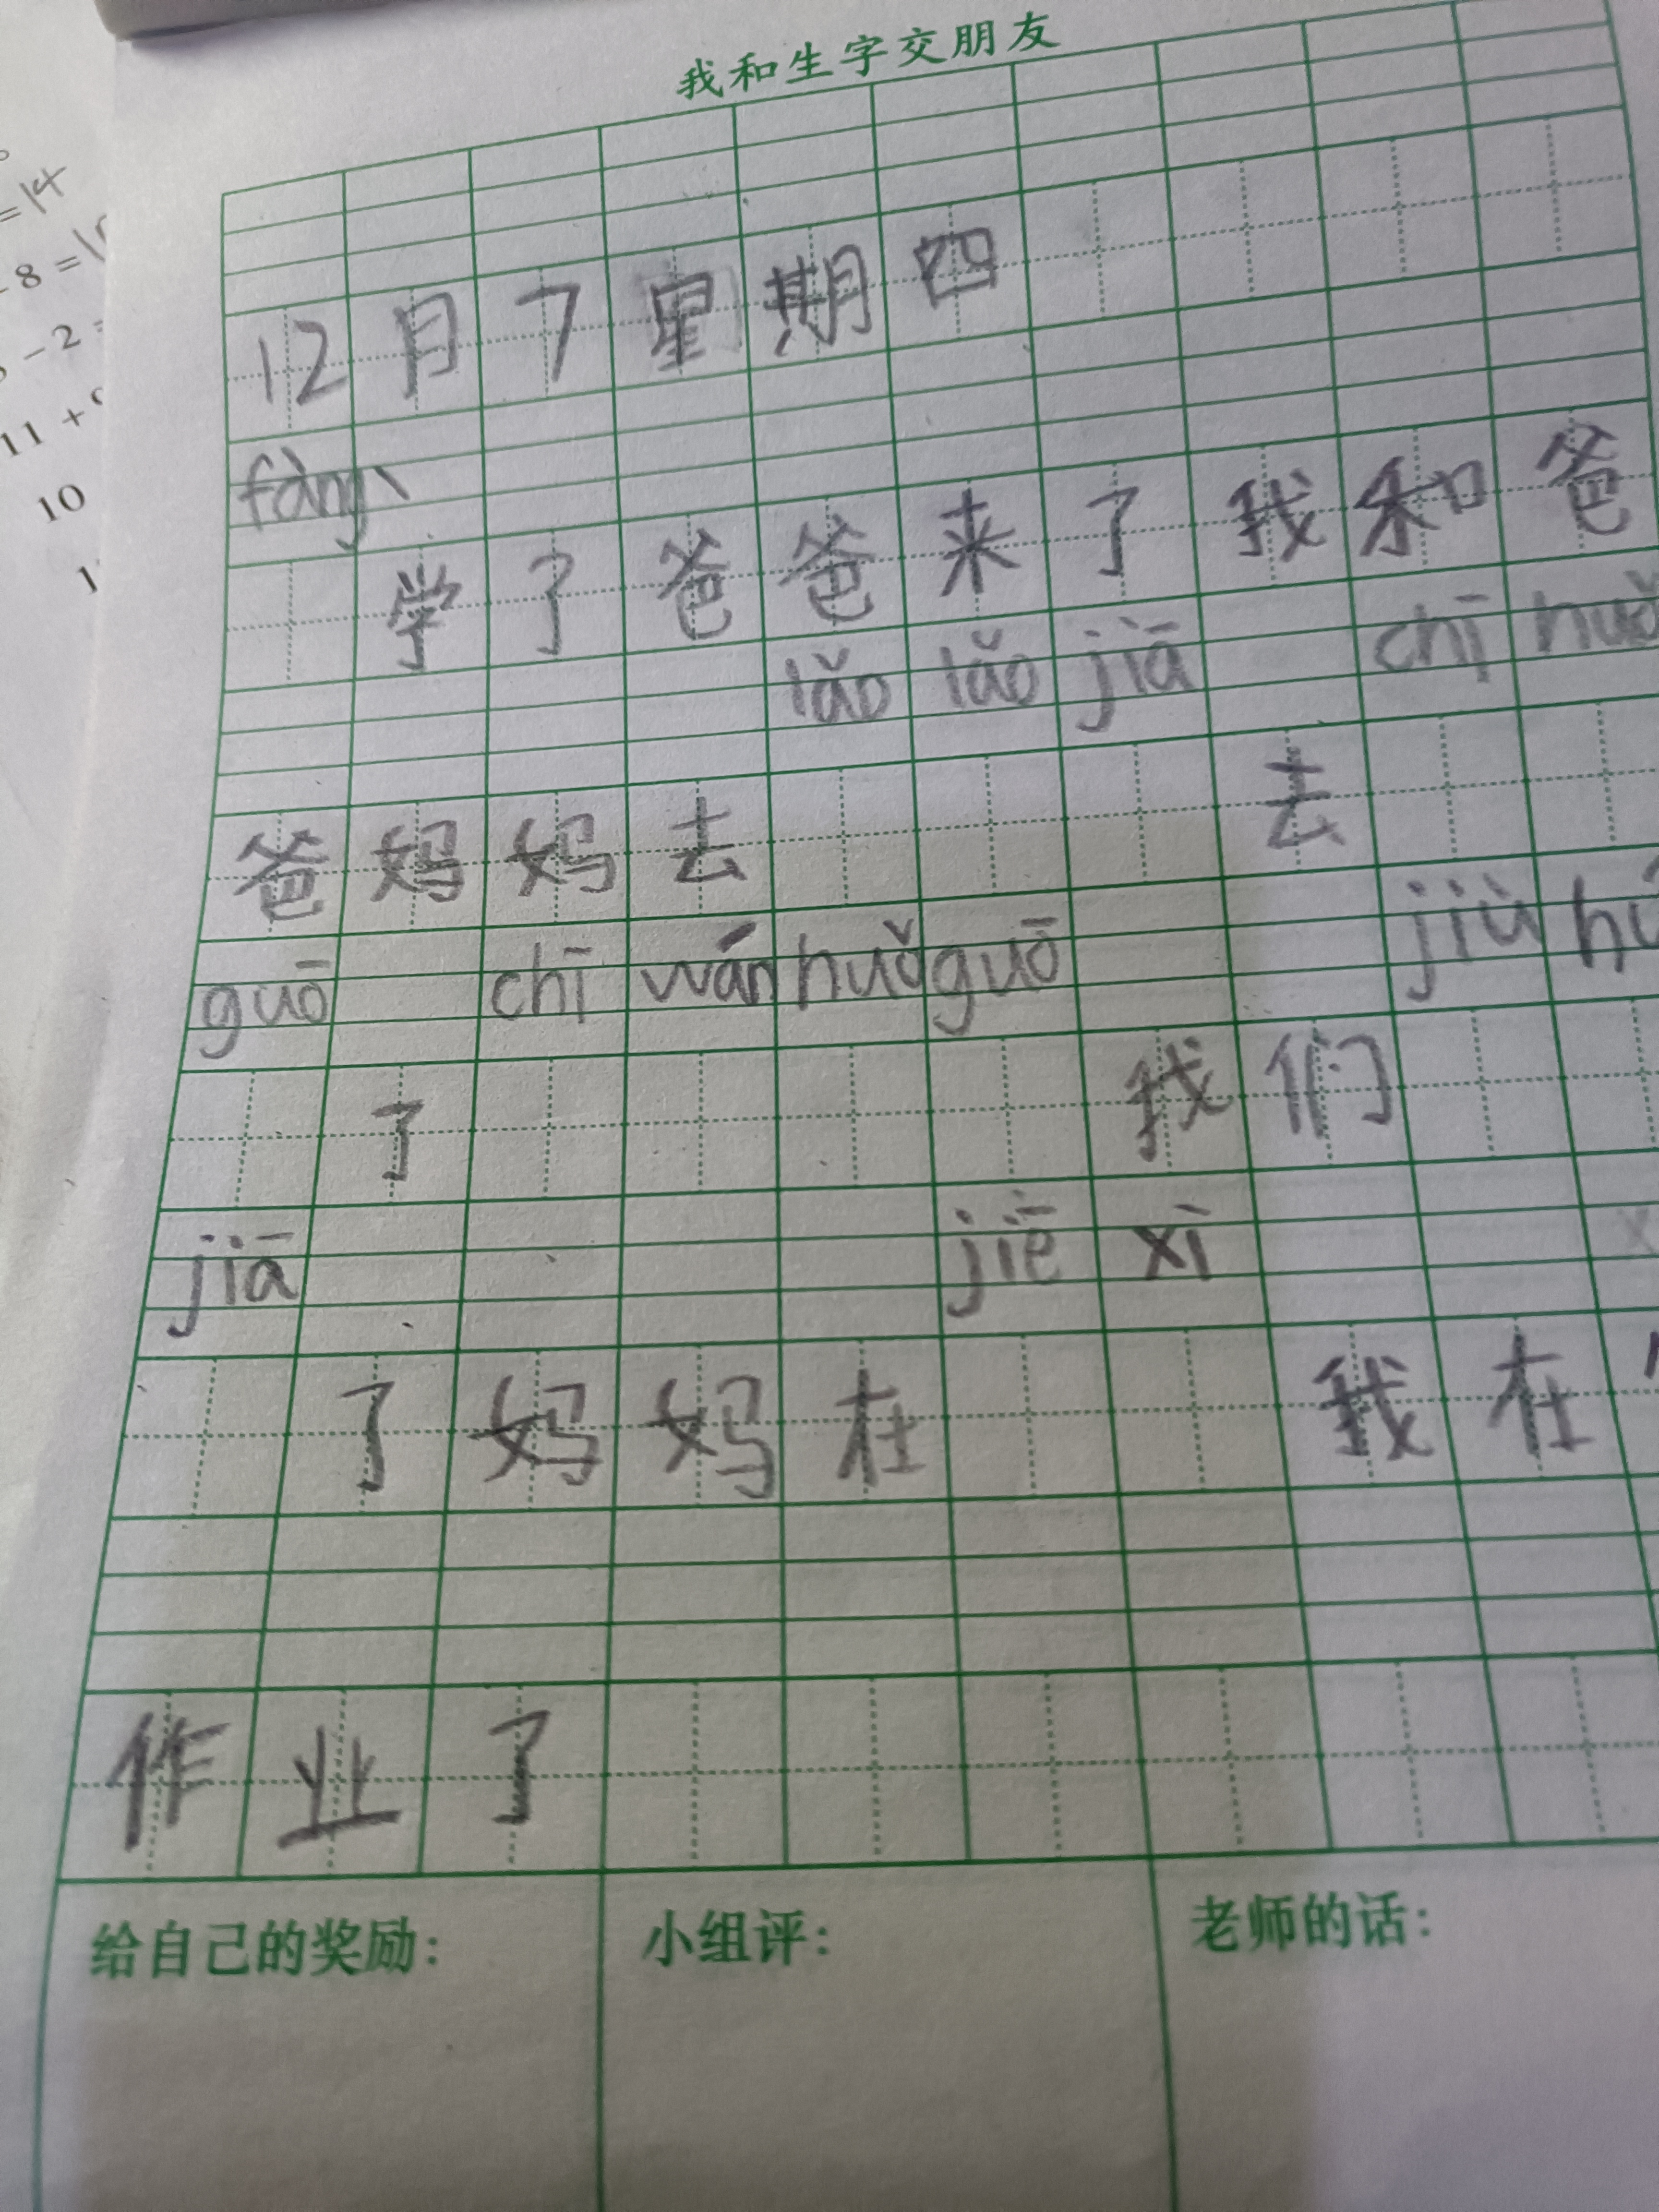 我和生字交朋友
=14
-8=1
-2=
11+9
10
1
12月7星期四
fàng
学了爸爸来了我和爸
lǎo lǎo jiā chī huǒ
爸妈妈去 去
guō chī wán huǒ guō jiù
了 我们
jiā jiē xì
了妈妈在 我在
作业了
给自己的奖励:
小组评:
老师的话: